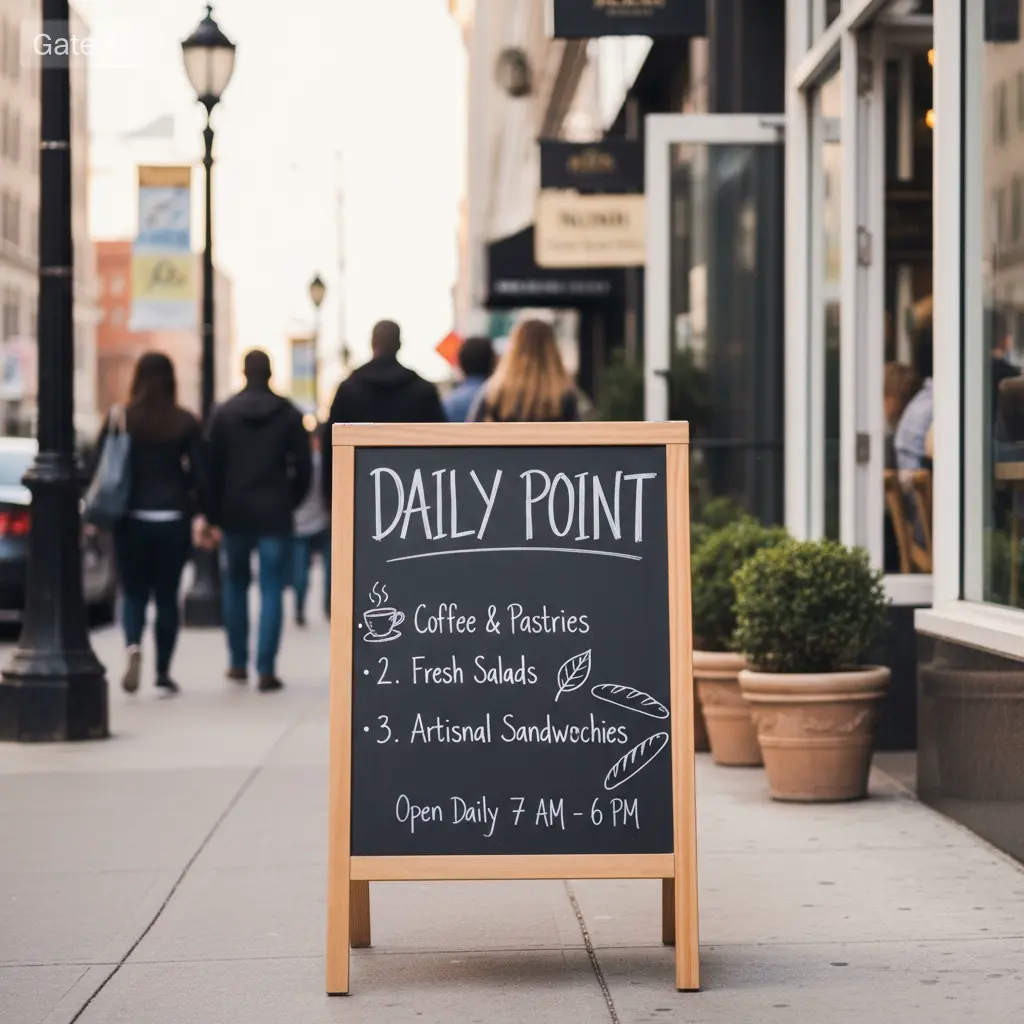 Gate
DAILY POINT
· Coffee & Pastries
· 2. Fresh Salads
· 3. Artisnal Sandwochies
Open Daily 7 AM – 6 PM